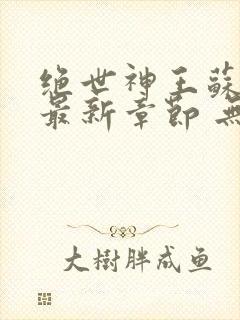 绝世神王蘇
最新章節 無
大樹胖成鱼